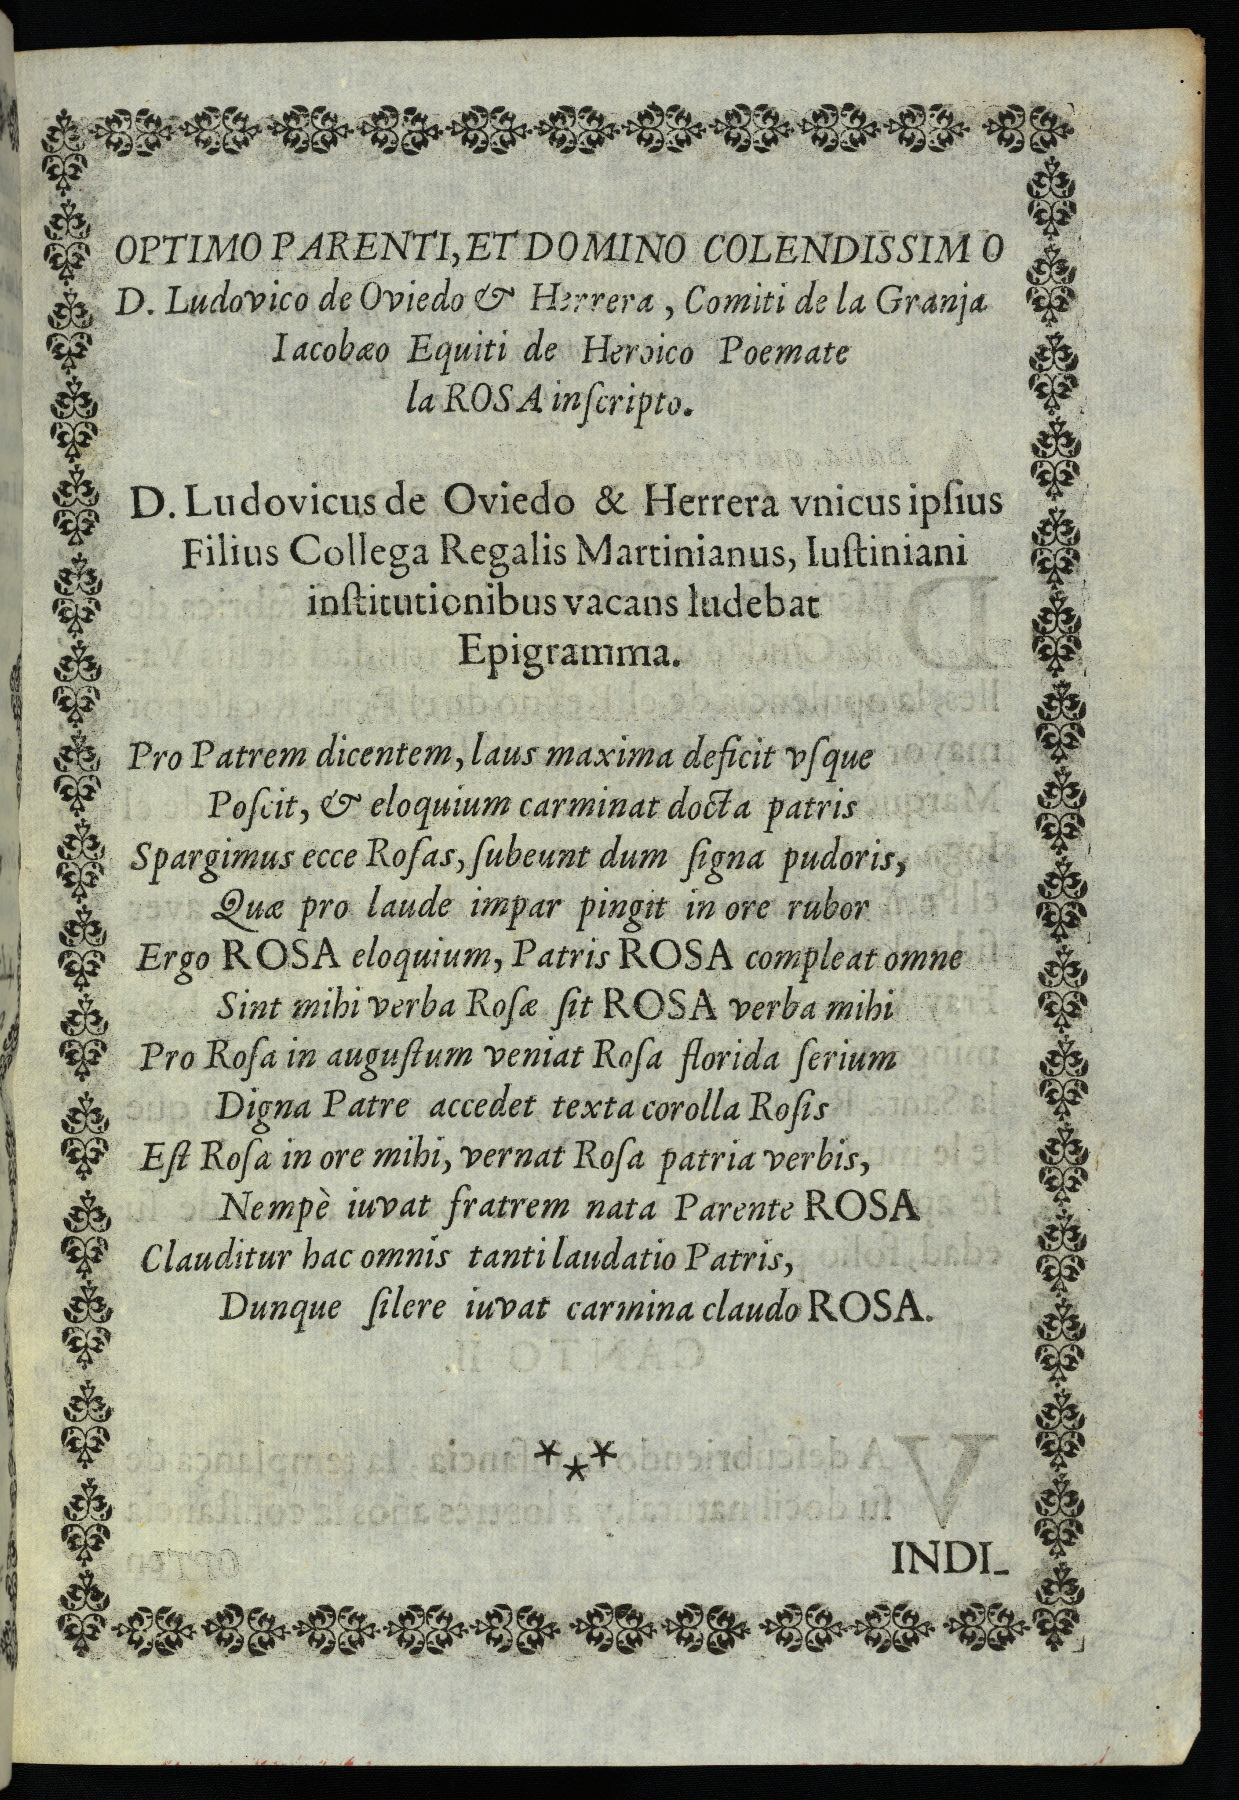 OPTIMO PARENTI, ET DOMINO COLENDISSIMO
D. Ludovico de Oviedo & Herrera, Comiti de la Granja
Iacobæo Equiti de Heroico Poemate
la ROSA inſcripto.
D. Ludovicus de Oviedo & Herrera vnicus ipſius
Filius Collega Regalis Martinianus, Iuſtiniani
inſtitutionibus vacans ludebat
Epigramma.
Pro Patrem dicentem, laus maxima deficit vſque
Poſcit, & eloquium carminat docta patris
Spargimus ecce Roſas, ſubeunt dum ſigna pudoris,
Quæ pro laude impar pingit in ore rubor
Ergo ROSA eloquium, Patris ROSA compleat omne
Sint mihi verba Roſæ ſit ROSA verba mihi
Pro Roſa in auguſtum veniat Roſa florida ſerium
Digna Patre accedet texta corolla Roſis
Eſt Roſa in ore mihi, vernat Roſa patria verbis,
Nempè iuvat fratrem nata Parente ROSA
Clauditur hac omnis tanti laudatio Patris,
Dunque ſilere iuvat carmina claudo ROSA.
***
INDI-